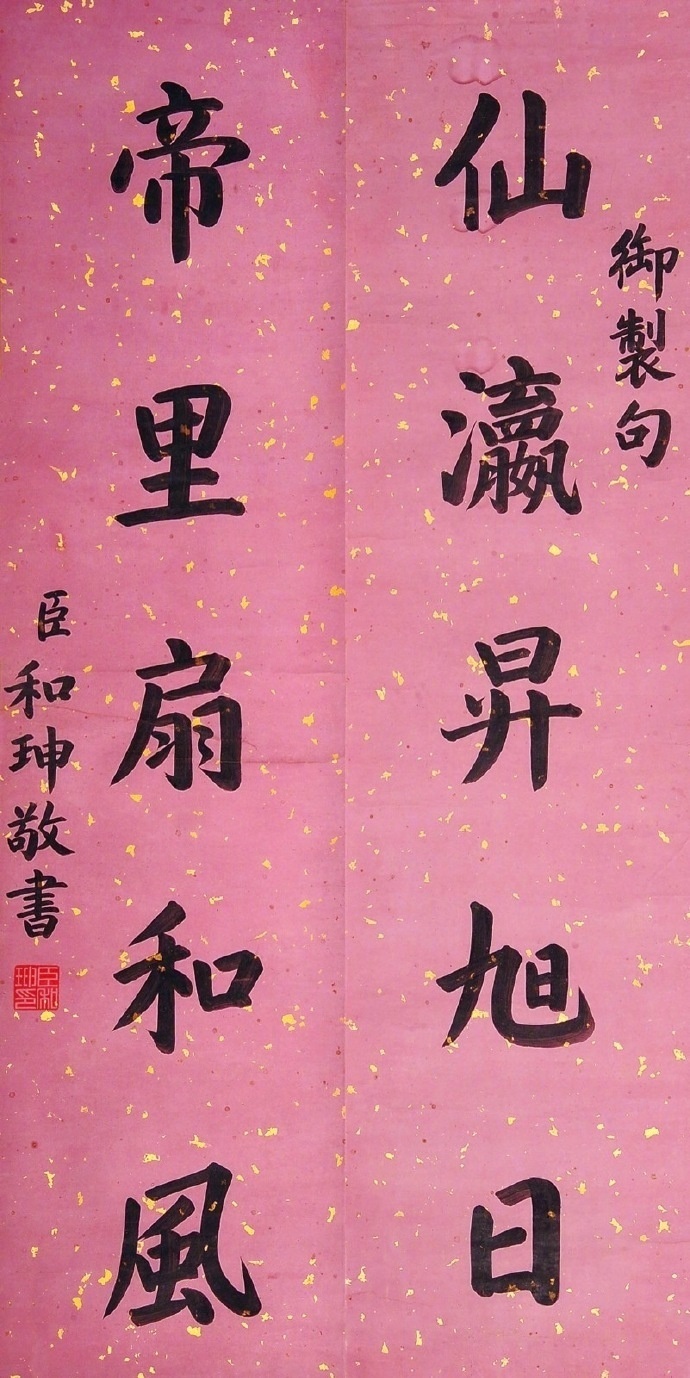 御製句
仙瀛昇旭日
帝里扇和風
臣和珅敬書
臣和珅印